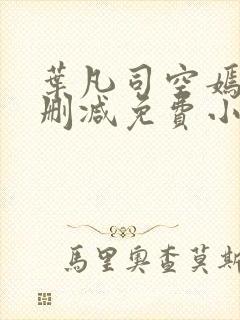 葉凡司空嫣
刪減免費小
馬里奧查莫斯